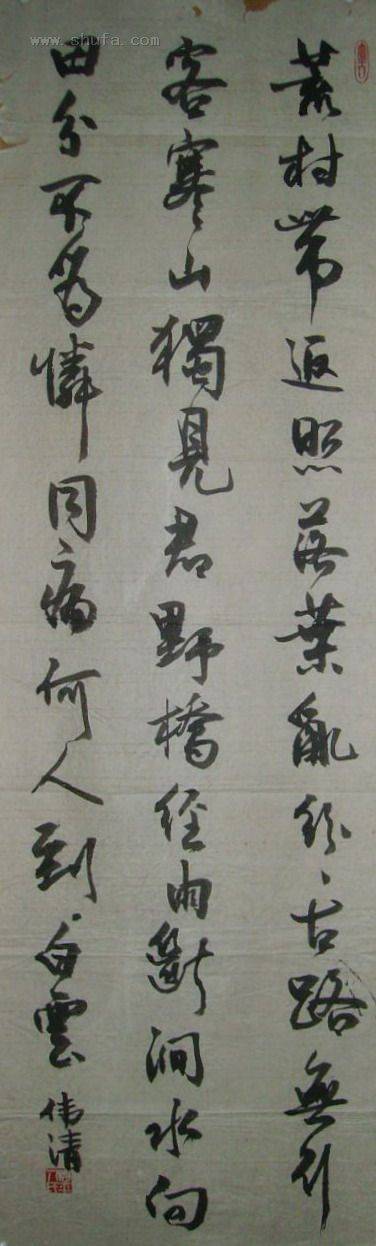 荒村帶返照落葉亂紛紛古路無行
客寒山獨見君野橋經雨斷澗水向
田分不為憐同病何人到白雲
伟清
www.shufa.com